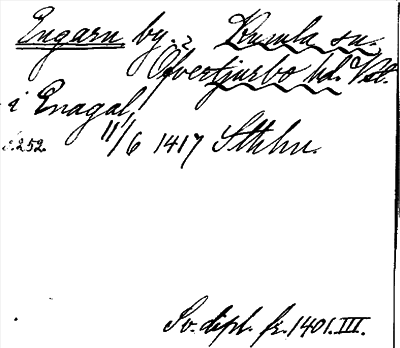 Engarn by. ? Kumla sn.
Öfvertjurbo hd. Vstl.
i Enagal,
s. 252. 11/6 1417 Sthlm.
Sv. dipl. fr. 1401. III.